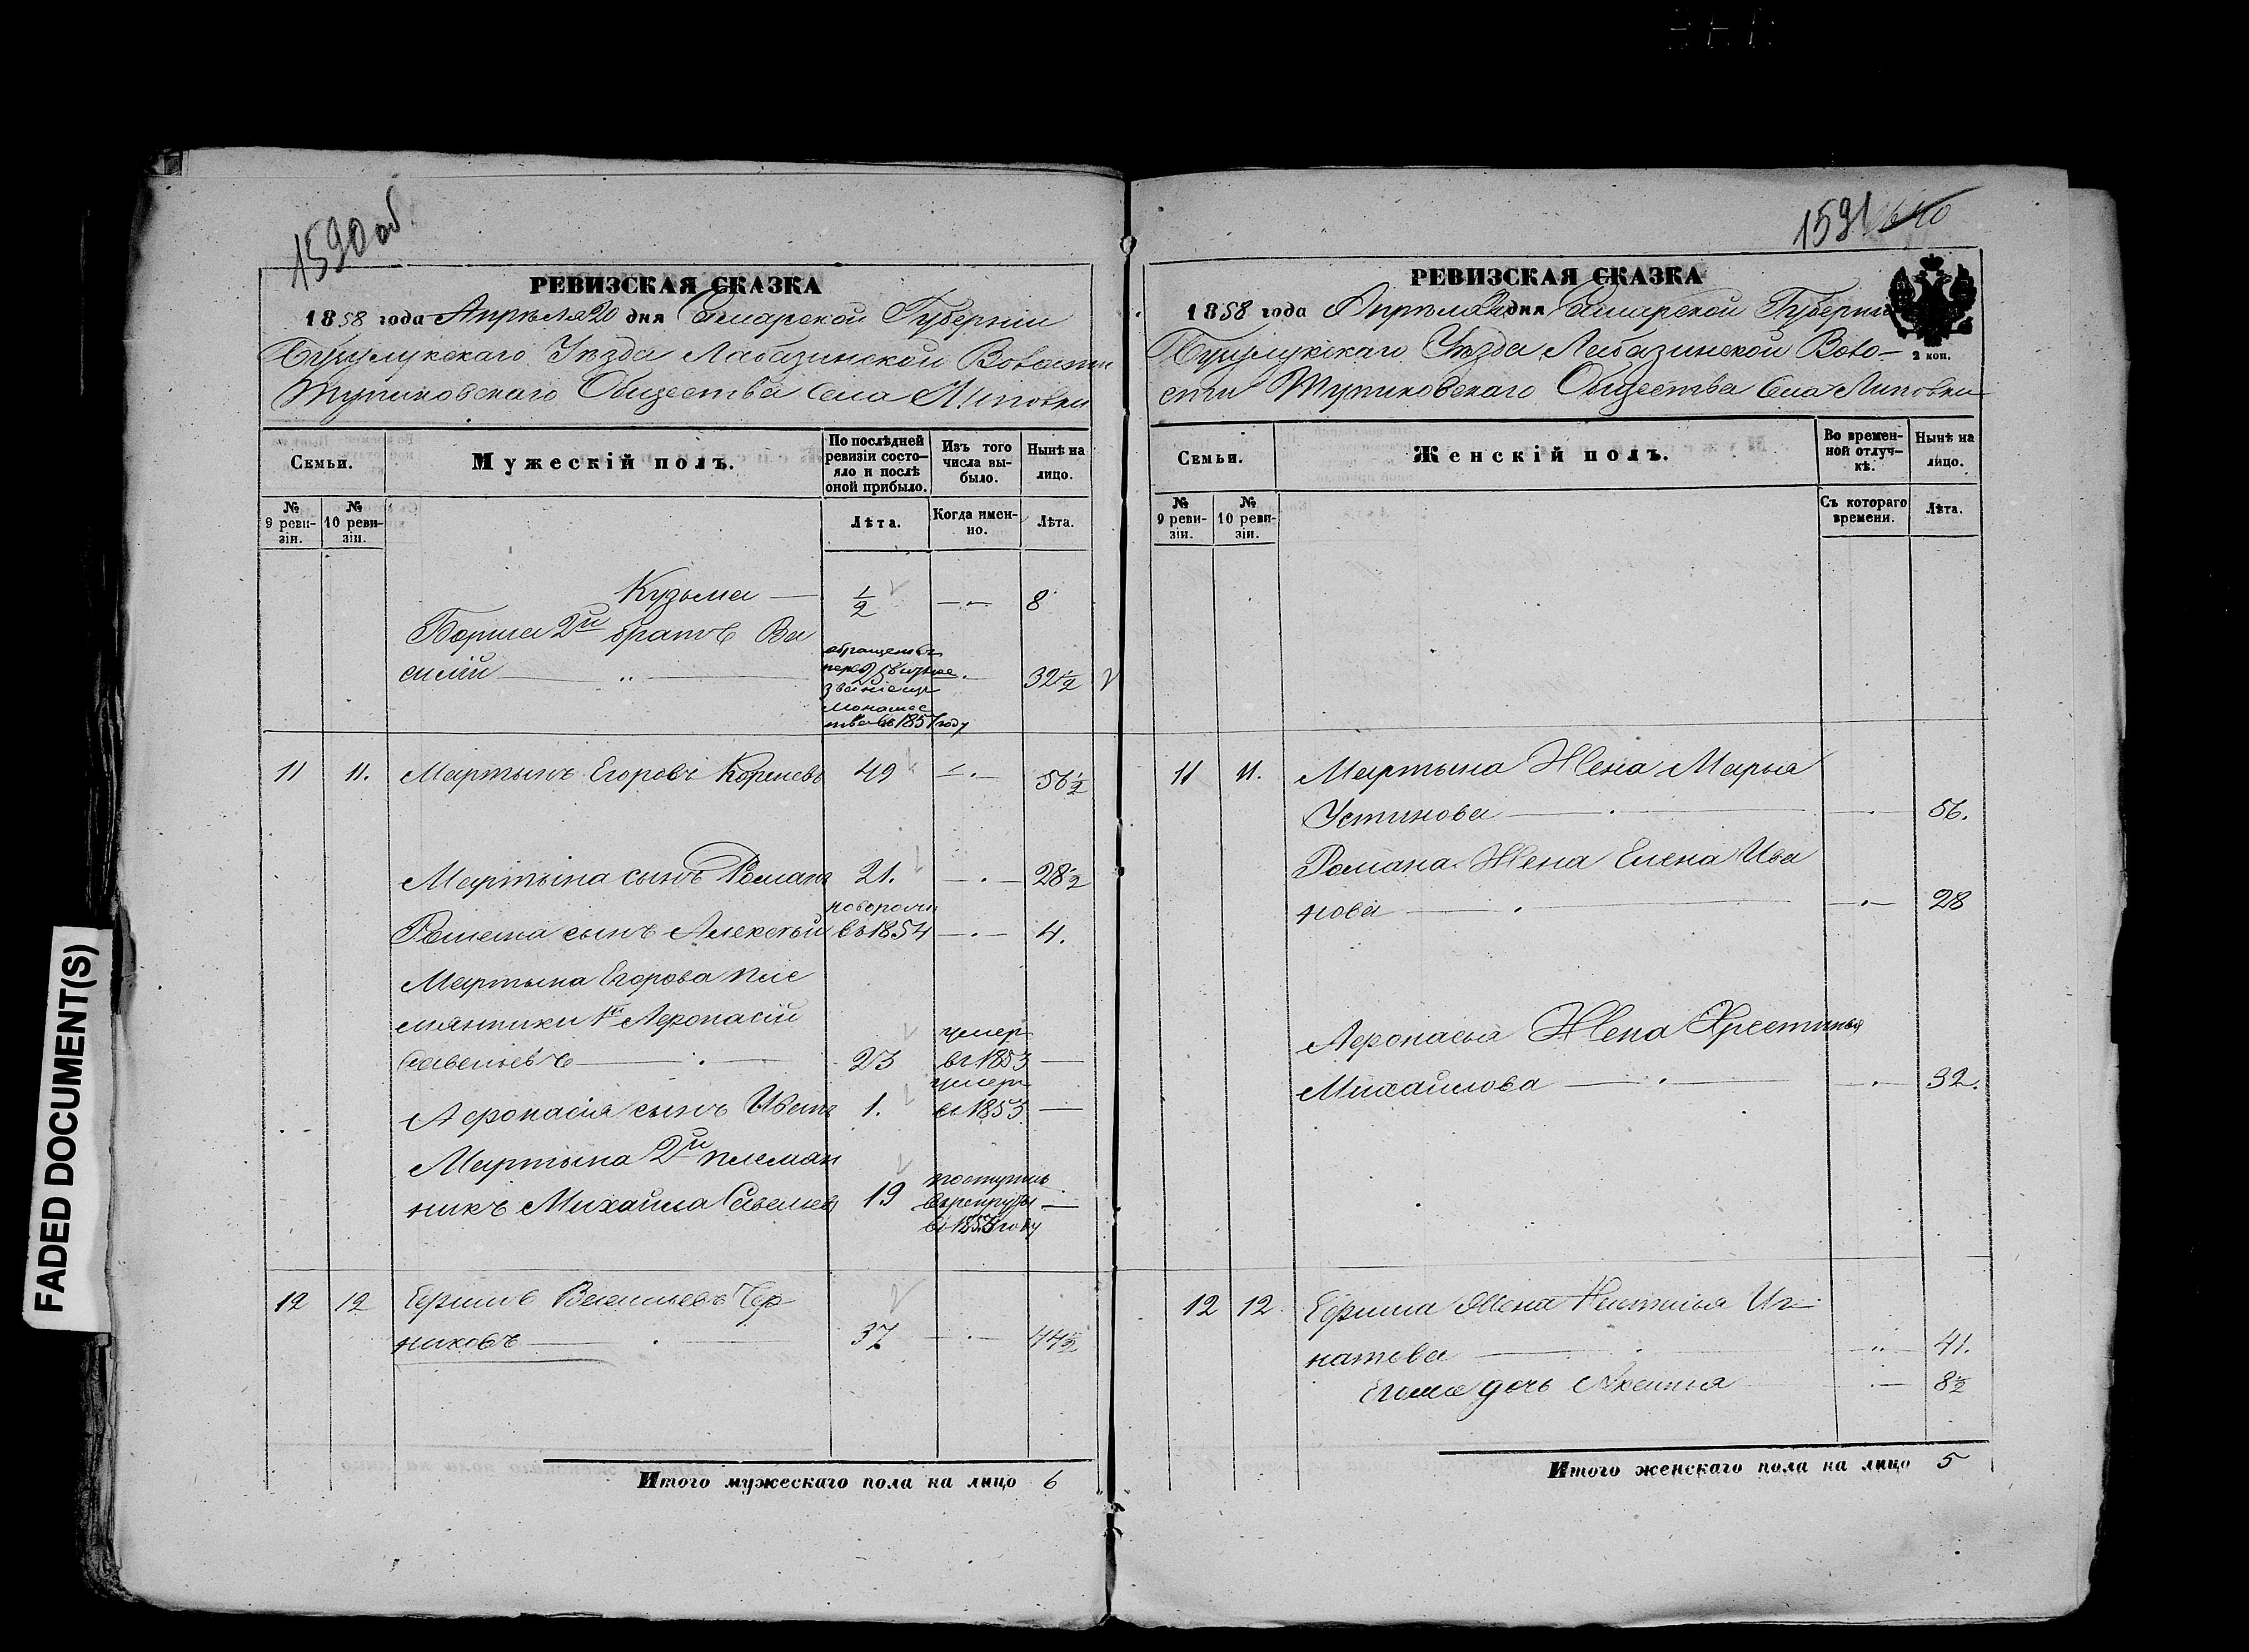 FADED DOCUMENT(S)
1590 об.
РЕВИЗСКАЯ СКАЗКА
1858 года Апрѣля 20 дня Самарской Губерніи
Бузулукскаго Уѣзда Лабазинской Волости
Тупиковскаго Общества Села Липовки
Семьи.
Мужескій полъ.
По послѣдней ревизіи состояло и послѣ оной прибыло.
Изъ того числа выбыло.
Нынѣ на лицо.
№ 9 ревизіи.
№ 10 ревизіи.
Лѣта.
Когда именно.
Лѣта.
Кузьма — ½ — 8
Бориса 2й братъ Ва
силій — 25 — 32½
обращенъ въ
званіе
въ 1857 году
11 11. Мартынъ Егоровъ Кореневъ 49 — 56½
Мартына сынъ Романъ 21. — 28½
Романа сынъ Алексѣй новорожд въ 1854 — 4.
Мартына Егорова пле
мянники 1й Афонасій
Савельевъ — 23 умеръ въ 1853 —
Афонасія сынъ Иванъ 1. умеръ въ 1853 —
Мартына 2й племян
никъ Михайла Савельевъ 19 поступилъ въ рекруты въ 1853 году —
12 12 Ефимъ Васильевъ
никовъ — 37 — 44½
Итого мужескаго пола на лицо 6
1591
РЕВИЗСКАЯ СКАЗКА
2 коп.
1858 года Апрѣля 20 дня Самарской Губерніи
Бузулукскаго Уѣзда Лабазинской Воло-
сти Тупиковскаго Общества Села Липовки
Семьи.
Женскій полъ.
Во временной отлучкѣ.
Нынѣ на лицо.
№ 9 ревизіи.
№ 10 ревизіи.
Съ котораго времени.
Лѣта.
11 11. Мартына Жена Марья
Устинова — — 56.
Романа Жена Елена Ива
нова — — 28
Афонасья Жена Хрестинья
Михайлова — — 32.
12 12. Ефима Жена Настасья Иг-
натева — — 41.
Его же дочь Аксинья — 8½
Итого женскаго пола на лицо 5